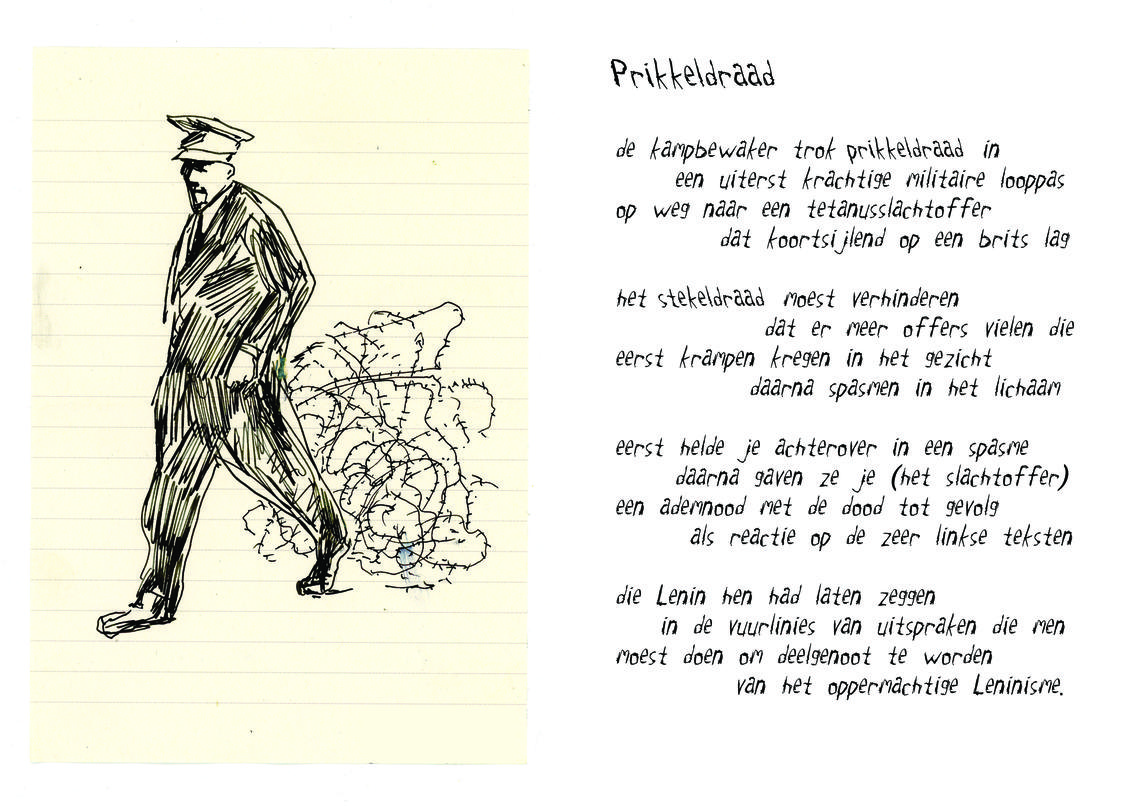 Prikkeldraad
de kampbewaker trok prikkeldraad in
een uiterst krachtige militaire looppas
op weg naar een tetanusslachtoffer
dat koortsijlend op een brits lag
het stekeldraad moest verhinderen
dat er meer offers vielen die
eerst krampen kregen in het gezicht
daarna spasmen in het lichaam
eerst helde je achterover in een spasme
daarna gaven ze je (het slachtoffer)
een ademnood met de dood tot gevolg
als reactie op de zeer linkse teksten
die Lenin hen had laten zeggen
in de vuurlinies van uitspraken die men
moest doen om deelgenoot te worden
van het oppermachtige Leninisme.